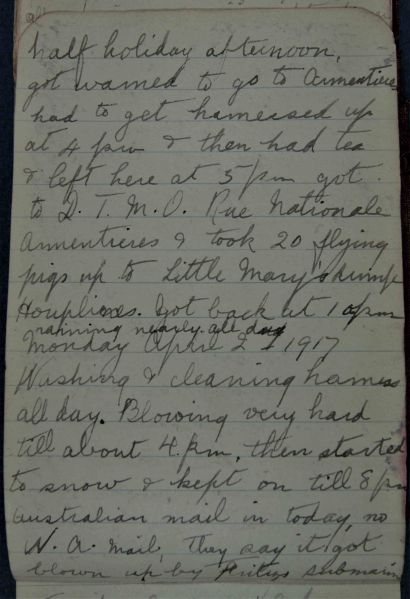 half holiday afternoon,
got warned to go to Armentieres
had to get harnessed up
at 4 pm & then had tea
& left here at 5 pm got
to D. T. M. O. Rue Nationale
Armentieres & took 20 flying
pigs up to Little Mary's dump
Houplines. Got back at 10 pm
raining nearly all day
Monday April 2 1917
Washing & cleaning harness
all day. Blowing very hard
till about 4. pm, then started
to snow & kept on till 8 pm
Australian mail in today, no
N. A. Mail, They say it got
blown up by Fritzs submarine